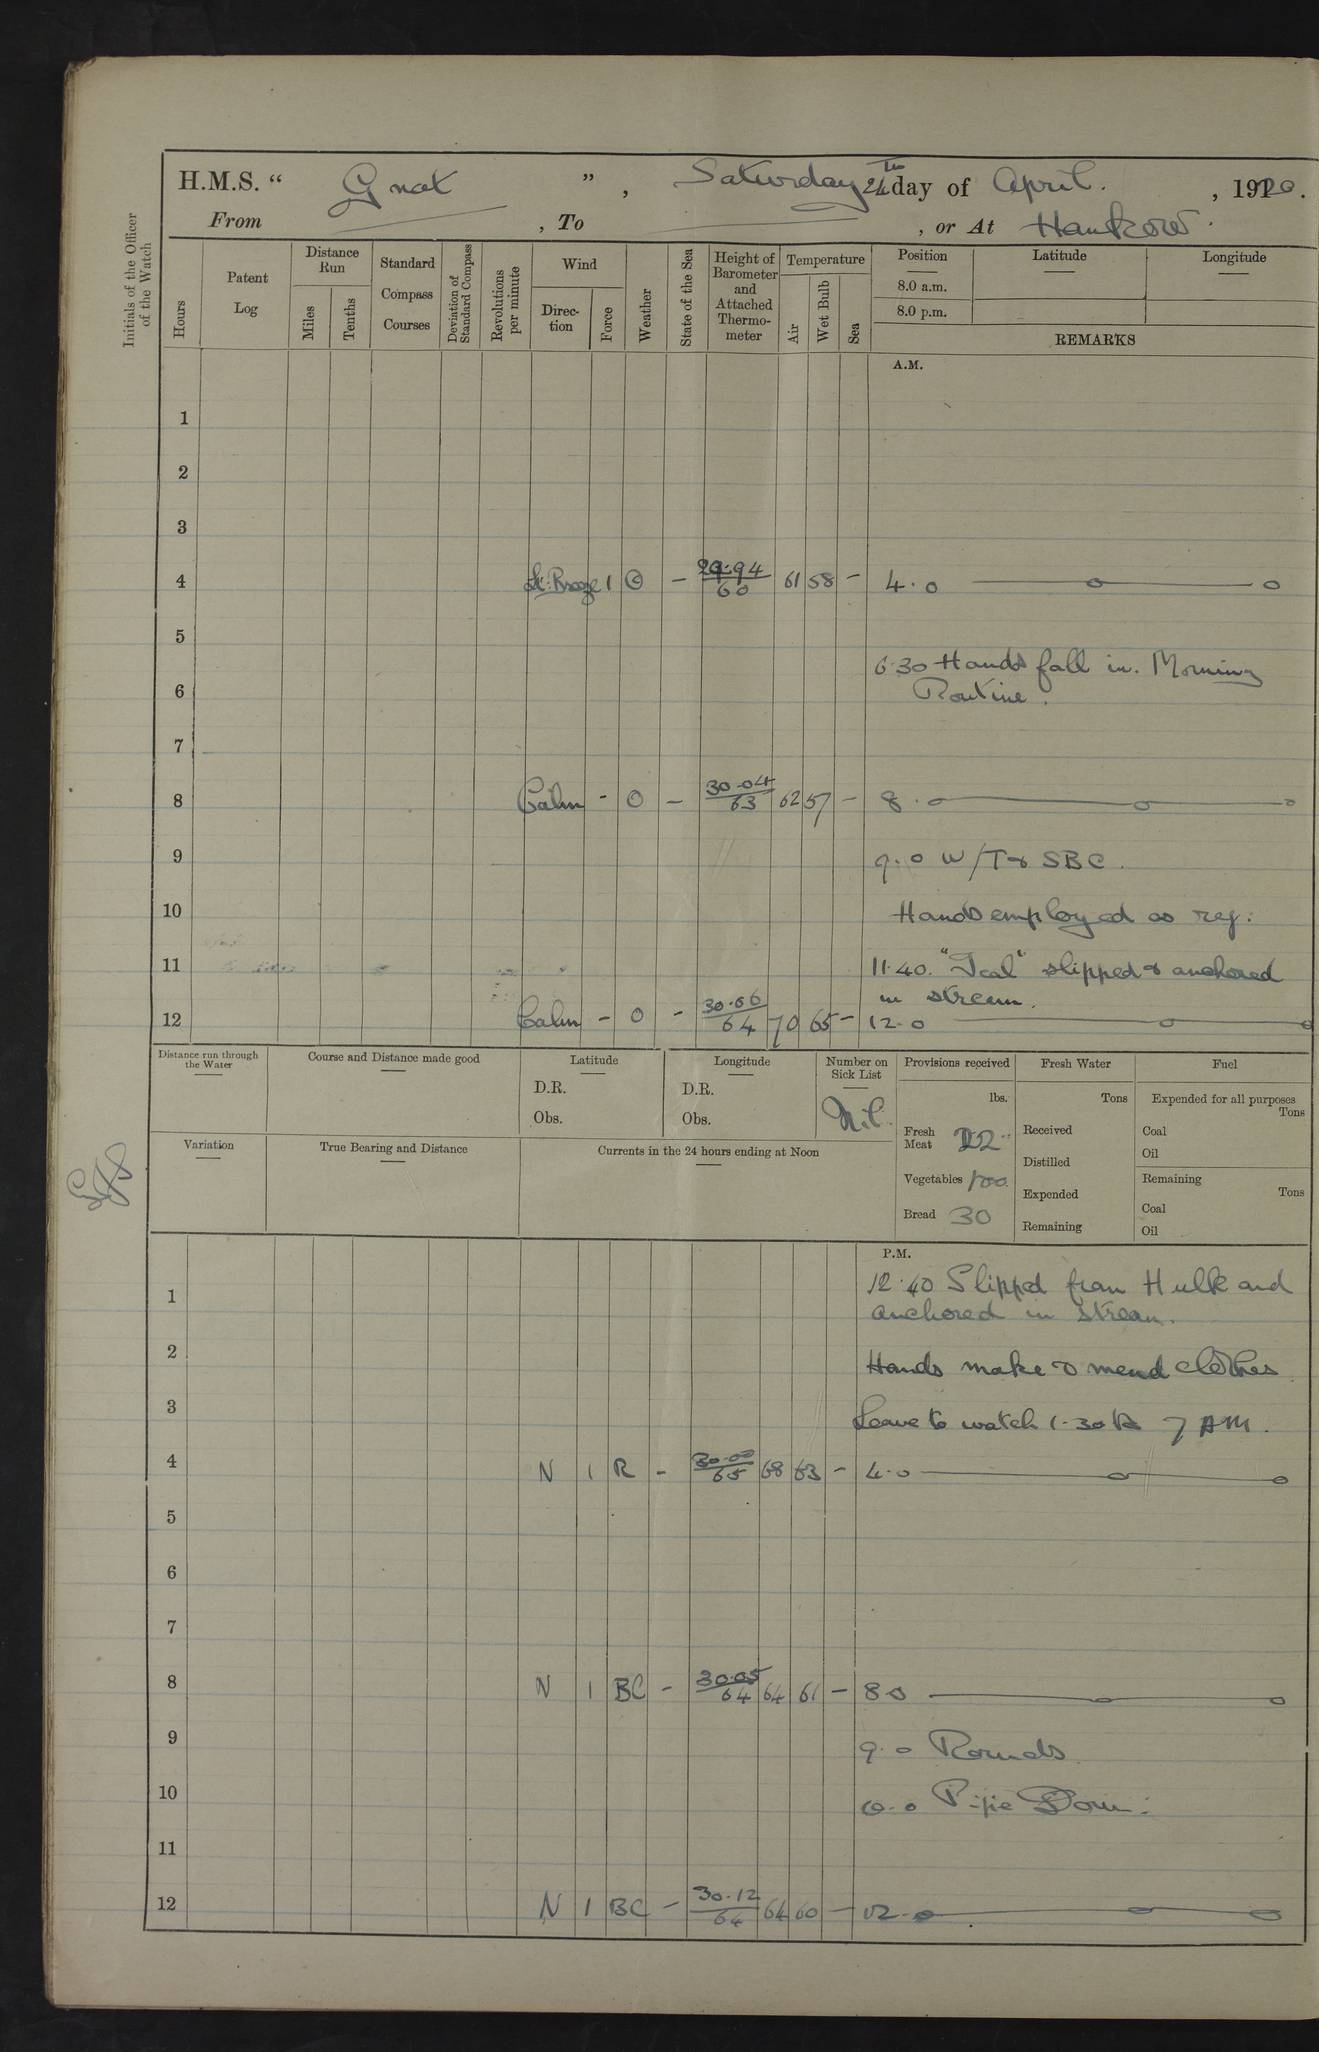 H.M.S. “ Gnat ” , Saturday 24th day of April. , 1920.
From , To , or At Hankow.
Initials of the Officer of the Watch
Hours
Patent Log
Distance Run
Miles
Tenths
Standard Compass Courses
Deviation of Standard Compass
Revolutions per minute
Wind
Direction
Force
Weather
State of the Sea
Height of Barometer and Attached Thermometer
Temperature
Air
Wet Bulb
Sea
Position
8.0 a.m.
8.0 p.m.
Latitude
Longitude
REMARKS
A.M.
1
2
3
4 Lt. Breeze 1 C - 29.94/60 61 58 - 4.0
5
6.30 Hands fall in. Morning
6 Routine.
7
8 Calm - O - 30.04/63 62 57 - 8.0
9 9.0 W/T & SBC.
10 Hands employed as req:
11 11.40. "Teal" slipped & anchored
in stream.
12 Calm - O - 30.06/64 70 65 - 12.0
Distance run through the Water
Course and Distance made good
Latitude
D.R.
Obs.
Longitude
D.R.
Obs.
Number on Sick List
Nil.
Provisions received
lbs.
Fresh Meat 22
Vegetables 100
Bread 30
Fresh Water
Tons
Received
Distilled
Expended
Remaining
Fuel
Expended for all purposes
Tons
Coal
Oil
Remaining
Tons
Coal
Oil
Variation
True Bearing and Distance
Currents in the 24 hours ending at Noon
P.M.
12.40 Slipped from Hulk and
1 anchored in stream.
2 Hands make & mend clothes.
3 Leave to watch 1.30 to 7 AM.
4 N 1 R - 30.00/65 68 63 - 4.0
5
6
7
8 N 1 BC - 30.05/64 64 61 - 8 0
9 9.0 Rounds
10 10.0 Pipe Down.
11
12 N 1 BC - 30.12/64 64 60 - 12.0